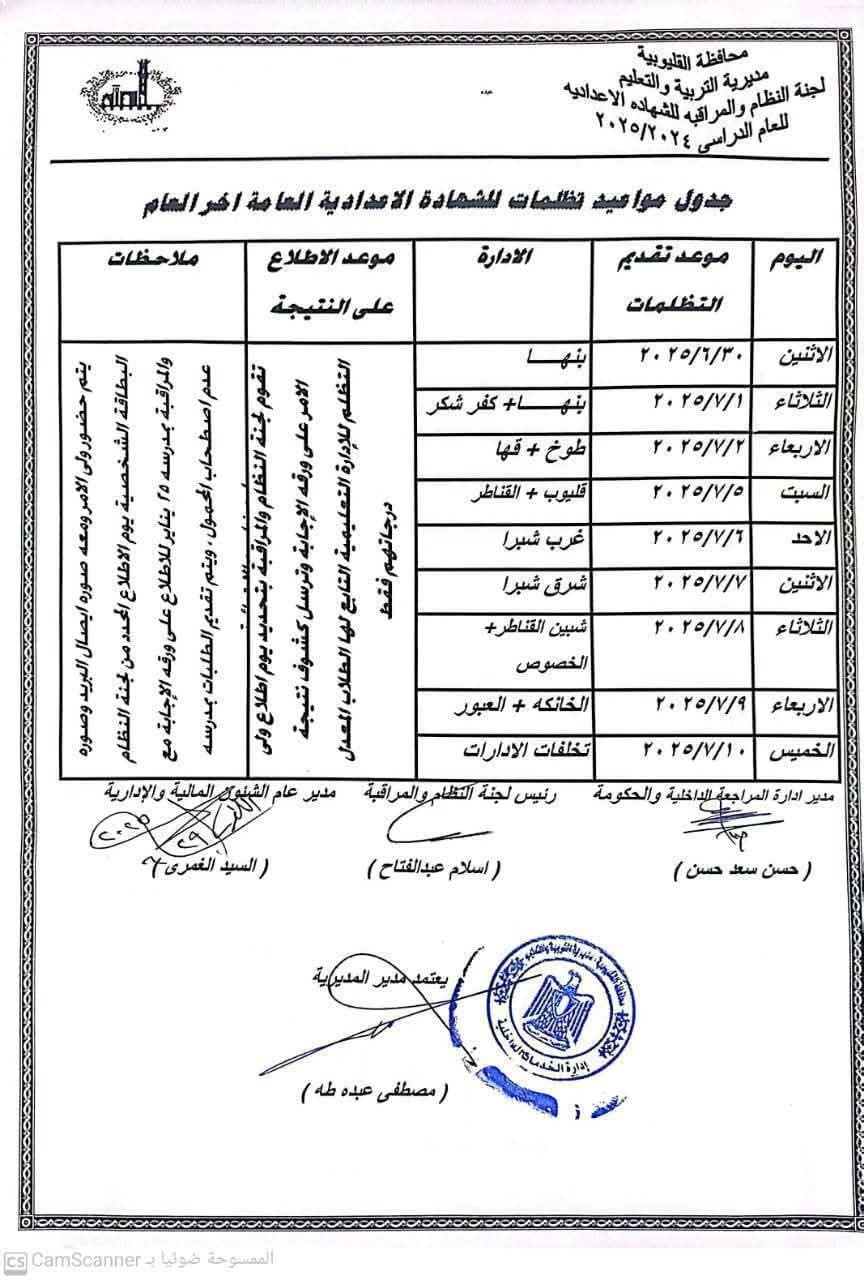 محافظة القليوبية
مديرية التربية والتعليم
لجنة النظام والمراقبه للشهاده الاعداديه
للعام الدراسى ٢٠٢٥/٢٠٢٤
جدول مواعيد تظلمات للشهادة الاعدادية العامة اخر العام
اليوم
موعد تقديم
التظلمات
الادارة
موعد الاطلاع
على النتيجة
ملاحظات
الاثنين ٢٠٢٥/٦/٣٠ بنهـــا
الثلاثاء ٢٠٢٥/٧/١ بنهـــا+ كفر شكر
الاربعاء ٢٠٢٥/٧/٢ طوخ + قها
السبت ٢٠٢٥/٧/٥ قليوب + القناطر
الاحد ٢٠٢٥/٧/٦ غرب شبرا
الاثنين ٢٠٢٥/٧/٧ شرق شبرا
الثلاثاء ٢٠٢٥/٧/٨ شبين القناطر+
الخصوص
الاربعاء ٢٠٢٥/٧/٩ الخانكه + العبور
الخميس ٢٠٢٥/٧/١٠ تخلفات الادارات
تقوم لجنة النظام والمراقبة بتحديد يوم اطلاع ولى
الامر على ورقه الإجابة وترسل كشوف نتيجة
التظلم للإدارة التعليمية التابع لها الطلاب المعدل
درجاتهم فقط
يتم حضور ولى الامر ومعه صوره ايصال البريد وصوره
البطاقة الشخصية يوم الاطلاع المحدد من لجنة النظام
والمراقبة بمدرسه ٢٥ يناير للاطلاع على ورقه الإجابة مع
عدم اصطحاب المحمول ، ويتم تقديم الطلبات بمدرسه
مدير ادارة المراجعة الداخلية والحكومة
رئيس لجنة النظام والمراقبة
مدير عام الشئون المالية والإدارية
( حسن سعد حسن )
( اسلام عبدالفتاح )
( السيد الغمرى )
يعتمد مدير المديرية
( مصطفى عبده طه )
إدارة الخدمات الداخلية
CS CamScanner الممسوحة ضوئيا بـ